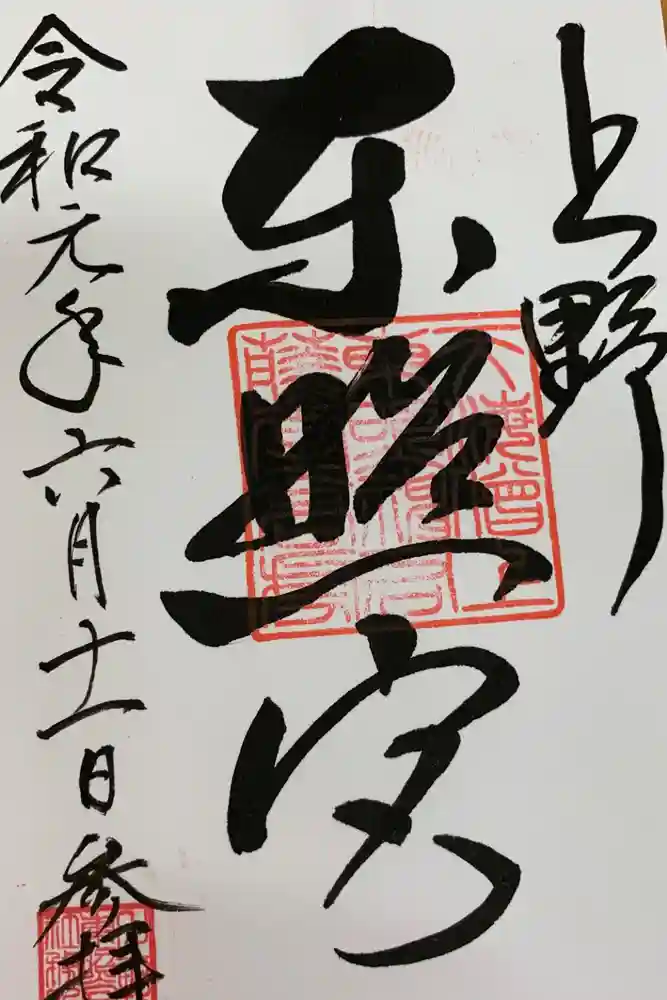 上野
東照宮
令和元年六月十一日参拝